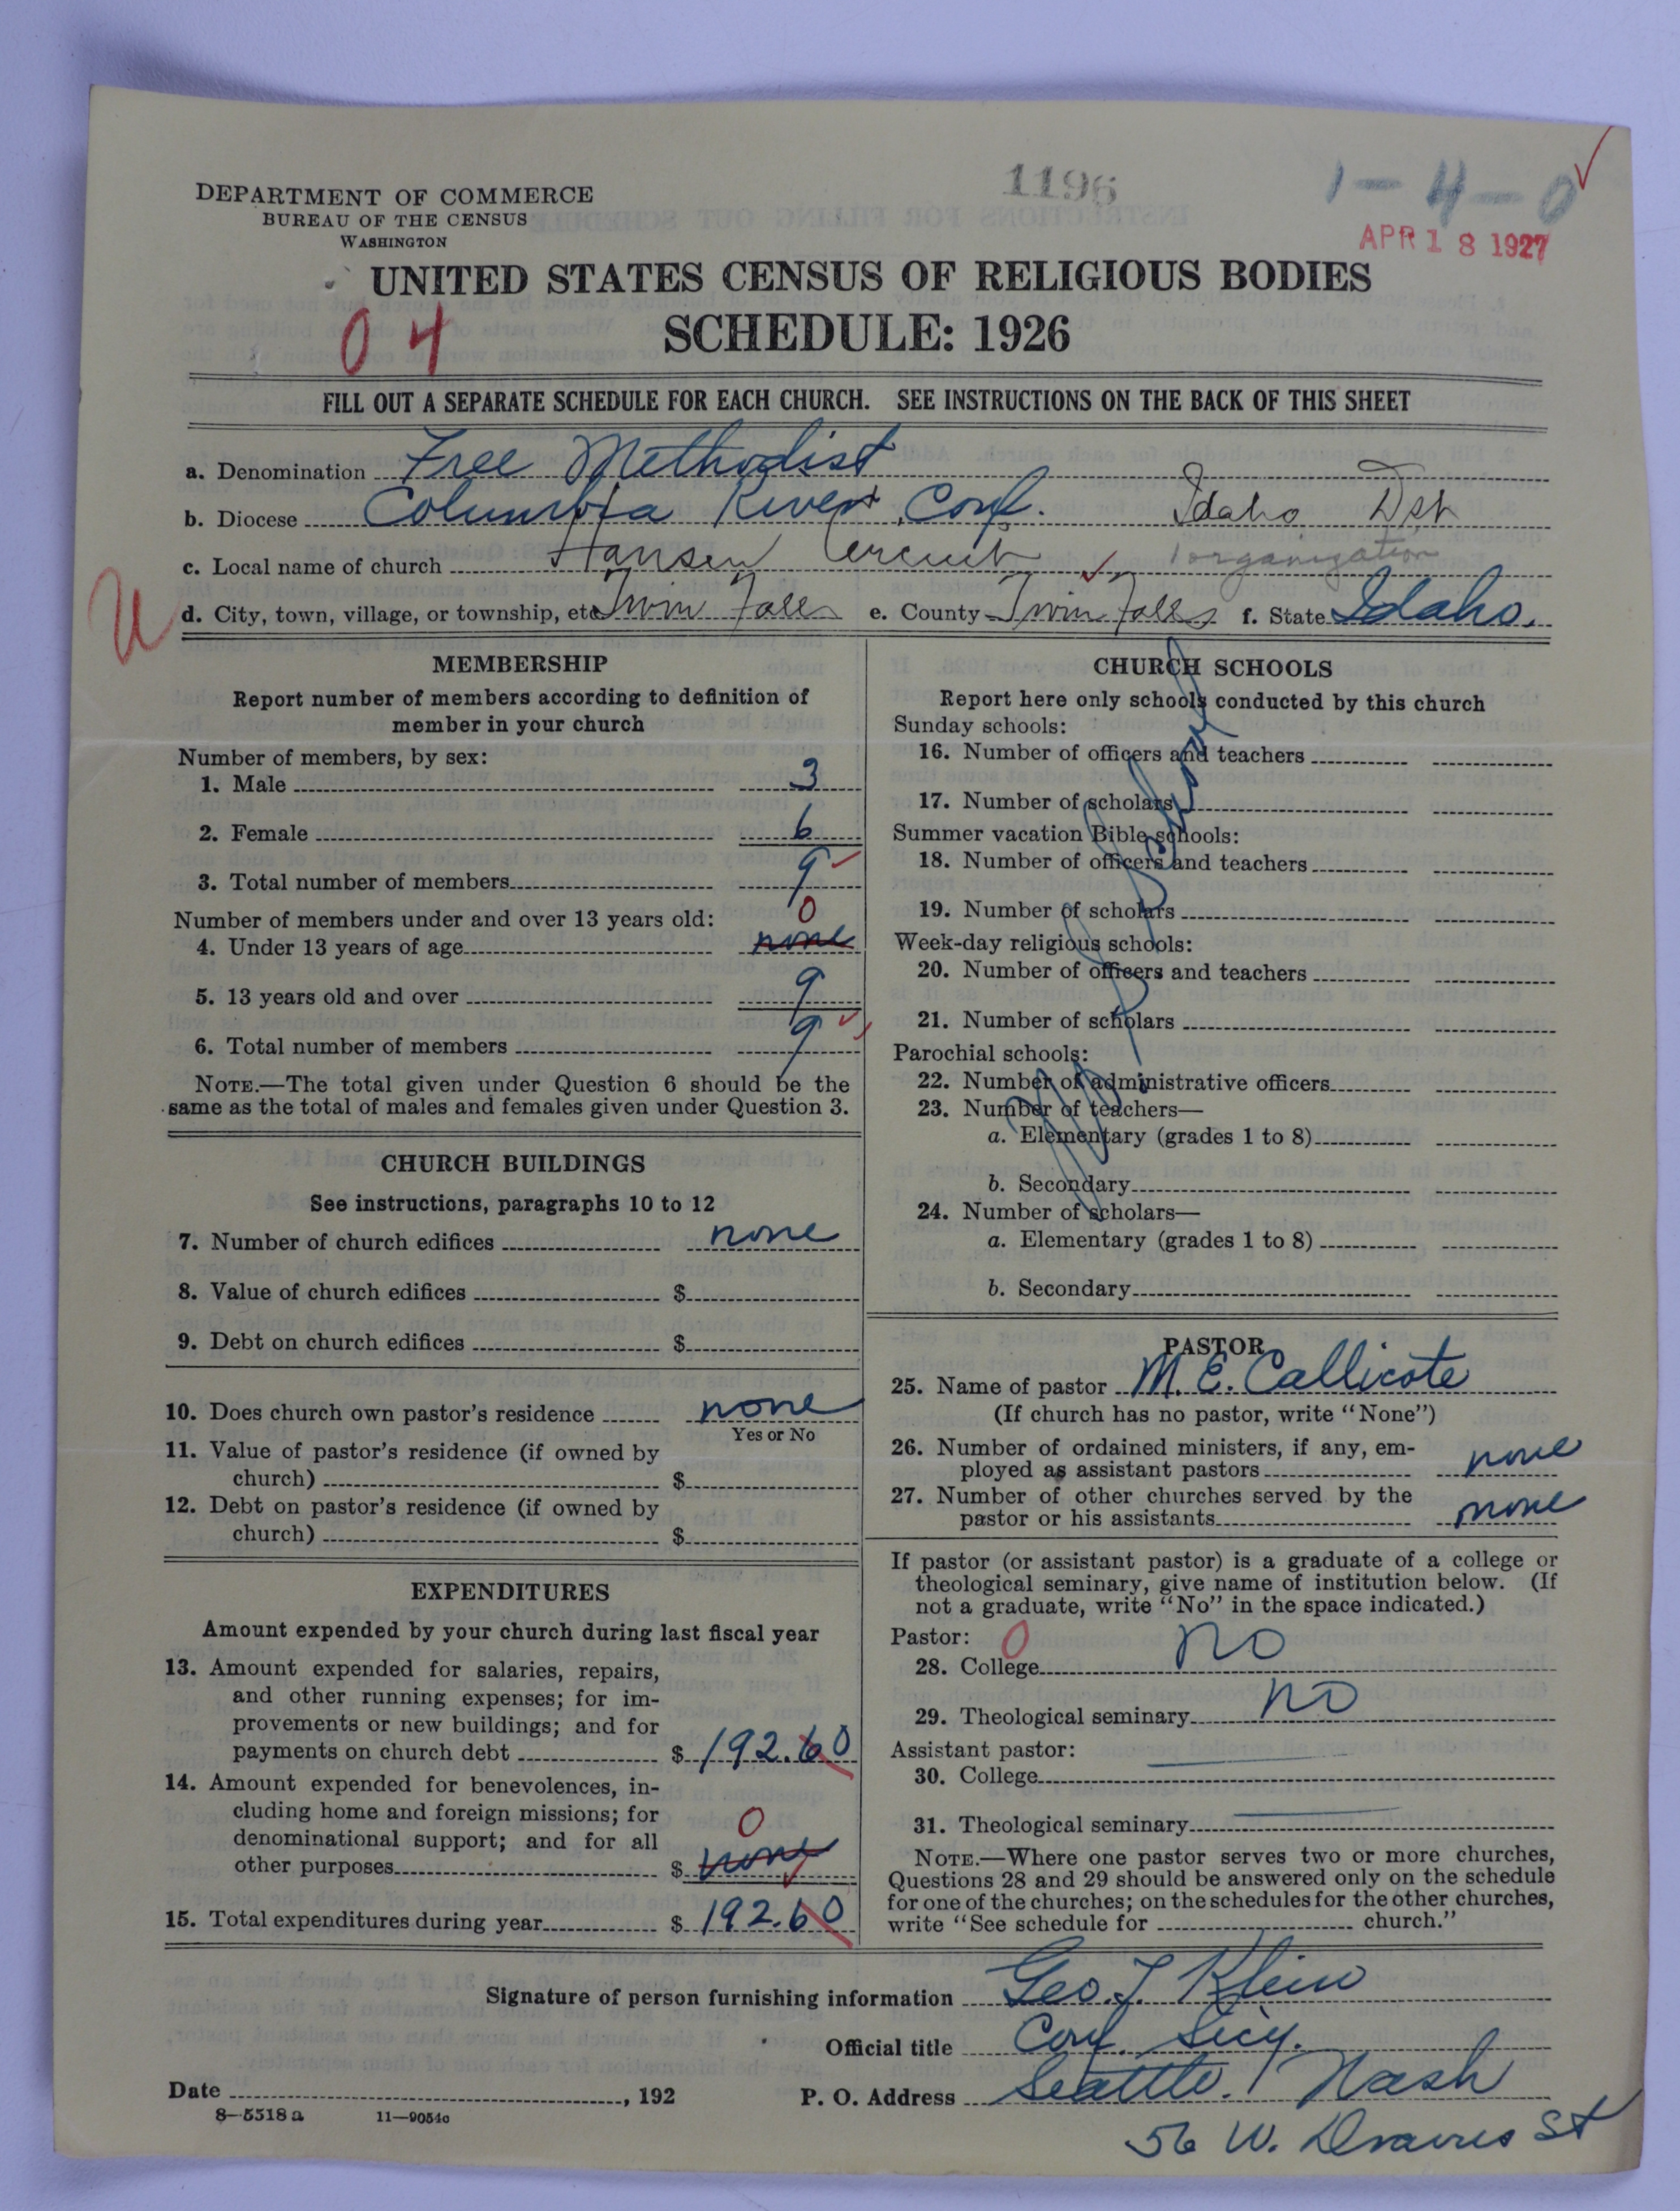 1196
1-4-0
APR 18 1927
DEPARTMENT OF COMMERCE
BUREAU OF THE CENSUS
WASHINGTON
UNITED STATES CENSUS OF RELIGIOUS BODIES
04
SCHEDULE: 1926
FILL OUT A SEPARATE SCHEDULE FOR EACH CHURCH. SEE INSTRUCTIONS ON THE BACK OF THIS SHEET
a. Denomination Free Methodist
b. Diocese Columbia River Conf. Idaho Dst
c. Local name of church Hansen Circuit 1 organization
d. City, town, village, or township, etc Twin Falls e. County Twin Falls f. State Idaho.
MEMBERSHIP
Report number of members according to definition of
member in your church
Number of members, by sex:
1. Male 3
2. Female 6
3. Total number of members 9
Number of members under and over 13 years old: 0
4. Under 13 years of age none
5. 13 years old and over 9
6. Total number of members 9
NOTE.—The total given under Question 6 should be the
same as the total of males and females given under Question 3.
CHURCH BUILDINGS
See instructions, paragraphs 10 to 12
7. Number of church edifices none
8. Value of church edifices $
9. Debt on church edifices $
10. Does church own pastor's residence none
Yes or No
11. Value of pastor's residence (if owned by
church) $
12. Debt on pastor's residence (if owned by
church) $
EXPENDITURES
Amount expended by your church during last fiscal year
13. Amount expended for salaries, repairs,
and other running expenses; for im-
provements or new buildings; and for
payments on church debt $ 192.60
14. Amount expended for benevolences, in-
cluding home and foreign missions; for
denominational support; and for all 0
other purposes $ none
15. Total expenditures during year $ 192.60
CHURCH SCHOOLS
Report here only schools conducted by this church
Sunday schools:
16. Number of officers and teachers
17. Number of scholars
Summer vacation Bible schools:
18. Number of officers and teachers
19. Number of scholars
Week-day religious schools:
20. Number of officers and teachers
21. Number of scholars
Parochial schools:
22. Number of administrative officers
23. Number of teachers—
a. Elementary (grades 1 to 8)
b. Secondary
24. Number of scholars—
a. Elementary (grades 1 to 8)
b. Secondary
PASTOR
25. Name of pastor M. E. Callicote
(If church has no pastor, write "None")
26. Number of ordained ministers, if any, em-
ployed as assistant pastors none
27. Number of other churches served by the
pastor or his assistants none
If pastor (or assistant pastor) is a graduate of a college or
theological seminary, give name of institution below. (If
not a graduate, write "No" in the space indicated.)
Pastor: 0
28. College no
29. Theological seminary no
Assistant pastor:
30. College
31. Theological seminary
NOTE.—Where one pastor serves two or more churches,
Questions 28 and 29 should be answered only on the schedule
for one of the churches; on the schedules for the other churches,
write "See schedule for church."
Signature of person furnishing information Geo. J. Klein
Official title Conf. Secy.
Date , 192 P. O. Address Seattle. Wash
8-5518a 11-9054c
56 W. St